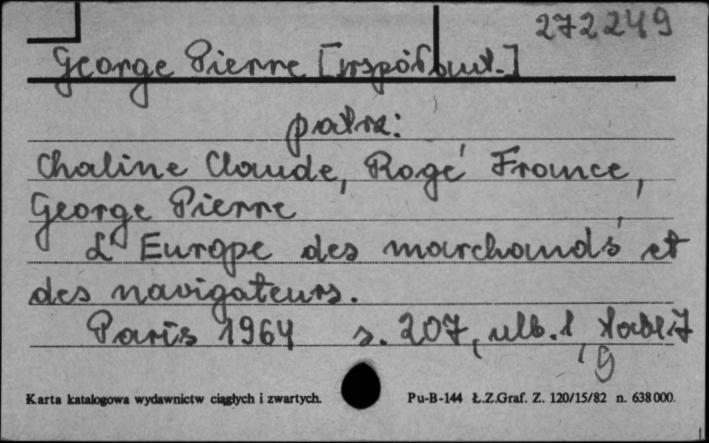 272249
George Pierre [współaut.]
patrz:
Chaline Claude, Rogé France,
George Pierre
L'Europe des marchands et
des navigateurs.
Paris 1964 s. 207,
Karta katalogowa wydawnictw ciągłych i zwartych. Pu-B-144 Ł.Z.Graf. Z. 120/15/82 n. 638000.